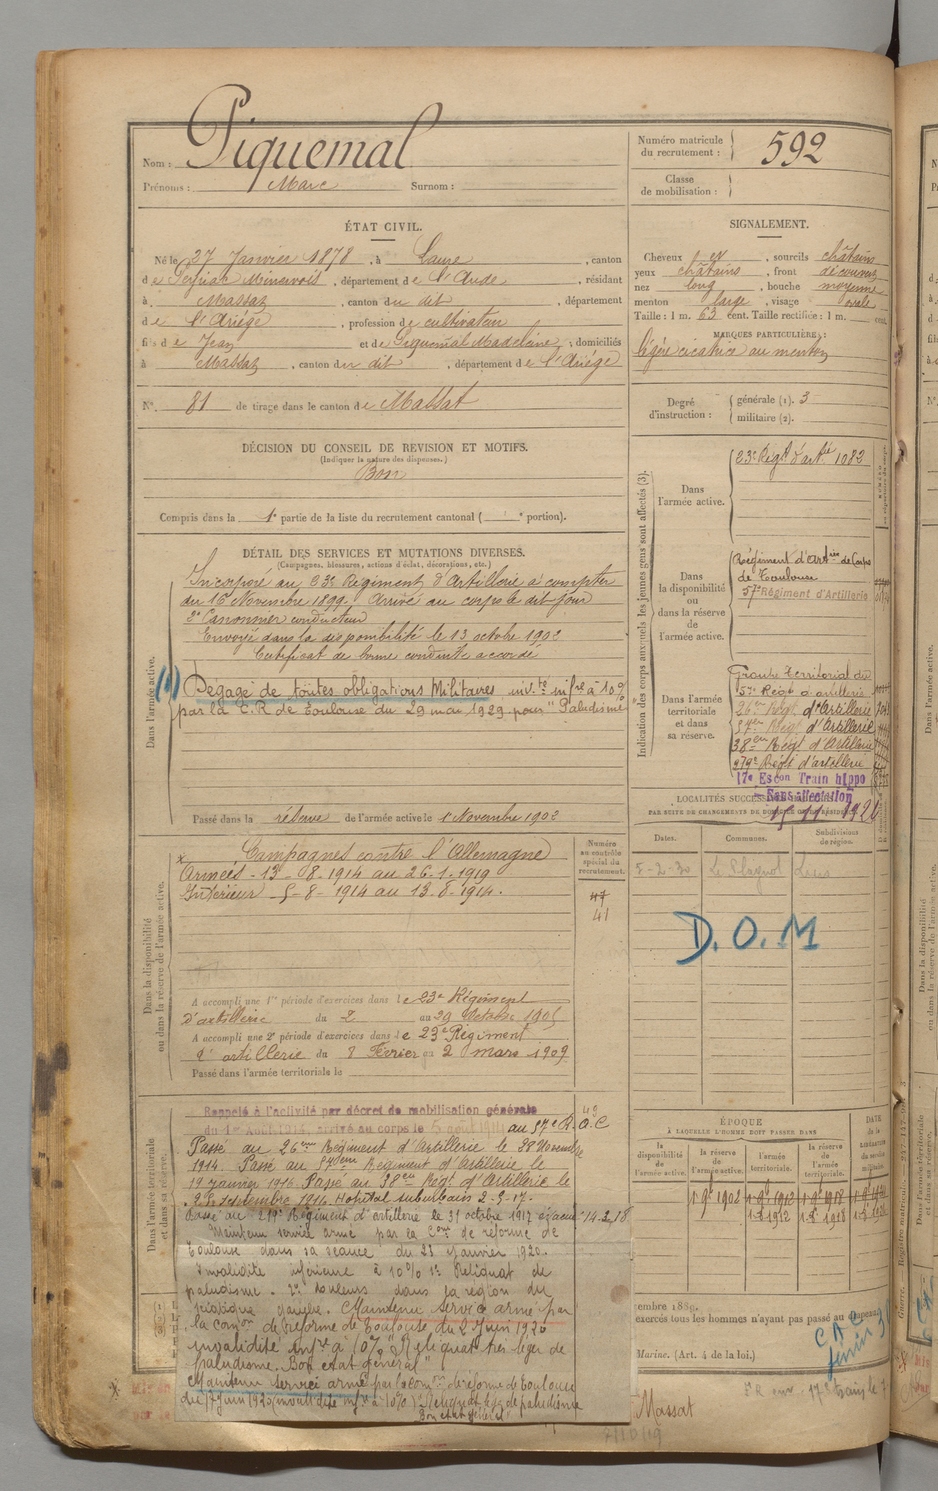 Nom : Piquemal
Prénoms : Marc Surnom :
Numéro matricule du recrutement : 592
Classe de mobilisation :
ÉTAT CIVIL.
Né le 27 Janvier 1878, à Laure, canton
de Peyriac Minervois, département de l'Aude, résidant
à Massat, canton du dit, département
de l'Ariège, profession de cultivateur
fils de Jean et de Piquemal Madeleine, domiciliés
à Massat, canton du dit, département de l'Ariège
N° 81 de tirage dans le canton de Massat
SIGNALEMENT.
Cheveux et, sourcils châtains
yeux châtains, front découvert
nez long, bouche moyenne
menton large, visage ovale
Taille : 1 m. 63 cent. Taille rectifiée : 1 m. cent.
MARQUES PARTICULIÈRES :
légère cicatrice au menton
Degré d'instruction : générale (1). 3
militaire (2).
DÉCISION DU CONSEIL DE REVISION ET MOTIFS.
(Indiquer la nature des dispenses.)
Bon
Compris dans la 1e partie de la liste du recrutement cantonal ( e portion).
DÉTAIL DES SERVICES ET MUTATIONS DIVERSES.
(Campagnes, blessures, actions d'éclat, décorations, etc.)
Dans l'armée active.
Incorporé au 23e Régiment d'Artillerie à compter
du 16 Novembre 1899. Arrivé au corps le dit jour
2e Canonnier conducteur
Envoyé dans la disponibilité le 13 octobre 1902
Certificat de bonne conduite accordé
Dégagé de toutes obligations Militaires inv.té infre à 10%
par la C.R de Toulouse du 29 mai 1929 pour "Paludisme
Passé dans la réserve de l'armée active le 1 Novembre 1902
Indication des corps auxquels les jeunes gens sont affectés (3).
Dans l'armée active.
23e Régt d'artie 1082
Dans la disponibilité ou dans la réserve de l'armée active.
Régiment d'Artrie de Corps
de Toulouse
57e Régiment d'Artillerie
Dans l'armée territoriale et dans sa réserve.
Groupe Territorial du
57e Régt d'artillerie
26eme Régt d'Artillerie
57eme Régt d'Artillerie
38eme Régt d'Artillerie
219e Régt d'artillerie
17e Escon Train hippo
Sans affectation
LOCALITÉS SUCCESSIVES
PAR SUITE DE CHANGEMENTS DE DOMICILE OU DE RÉSIDENCE
Dates. Communes. Subdivisions de région.
5-2-30 Le Plagnol
D.O.M
Dans la disponibilité ou dans la réserve de l'armée active.
Numéro au contrôle spécial du recrutement.
47
41
Campagnes contre l'Allemagne
Armées - 13-8-1914 au 26.1.1919
Intérieur 5-8-1914 au 13.8.1914.
A accompli une 1re période d'exercices dans le 23e Régiment
D'artillerie du 2 au 29 Octobre 1905
A accompli une 2e période d'exercices dans le 23e Régiment
d'artillerie du 8 Février au 2 mars 1909
Passé dans l'armée territoriale le
Dans l'armée territoriale et dans sa réserve.
Rappelé à l'activité par décret de mobilisation générale
du 1er Août 1914, arrivé au corps le 5 août 1914 au 57e R.A.C
Passé au 26eme Régiment d'Artillerie le 28 Novembre
1914. Passé au 57eme Régiment d'Artillerie le
19 janvier 1916. Passé au 38eme Régt d'Artillerie le
septembre 1916. Hopital suburbain 2-5-17.
Passé au 219e Régiment d'artillerie le 31 octobre 1917 évacué 14.2.18
Maintenu service armé par la Com. de réforme de
Toulouse dans sa séance du 23 Janvier 1920.
Invalidité inférieure à 10% 1° Reliquat de
paludisme. 2° douleurs dans la région du
sciatique gauche. Maintenu service armé par
la comon de réforme de Toulouse du 2 Juin 1926
invalidité infre à 10% "Reliquat très léger de
paludisme. Bon état général"
Maintenu service armé par la com. de réforme de Toulouse
du 17 Juin 1920 invalidité infre à 10% Reliquat léger de paludisme
Bon état général
ÉPOQUE
À LAQUELLE L'HOMME DOIT PASSER DANS
la disponibilité de l'armée active.
la réserve de l'armée active.
l'armée territoriale.
la réserve de l'armée territoriale.
embre 1889.
exercés tous les hommes n'ayant pas passé au drapeau.
Marine. (Art. 4 de la loi.)
Massat